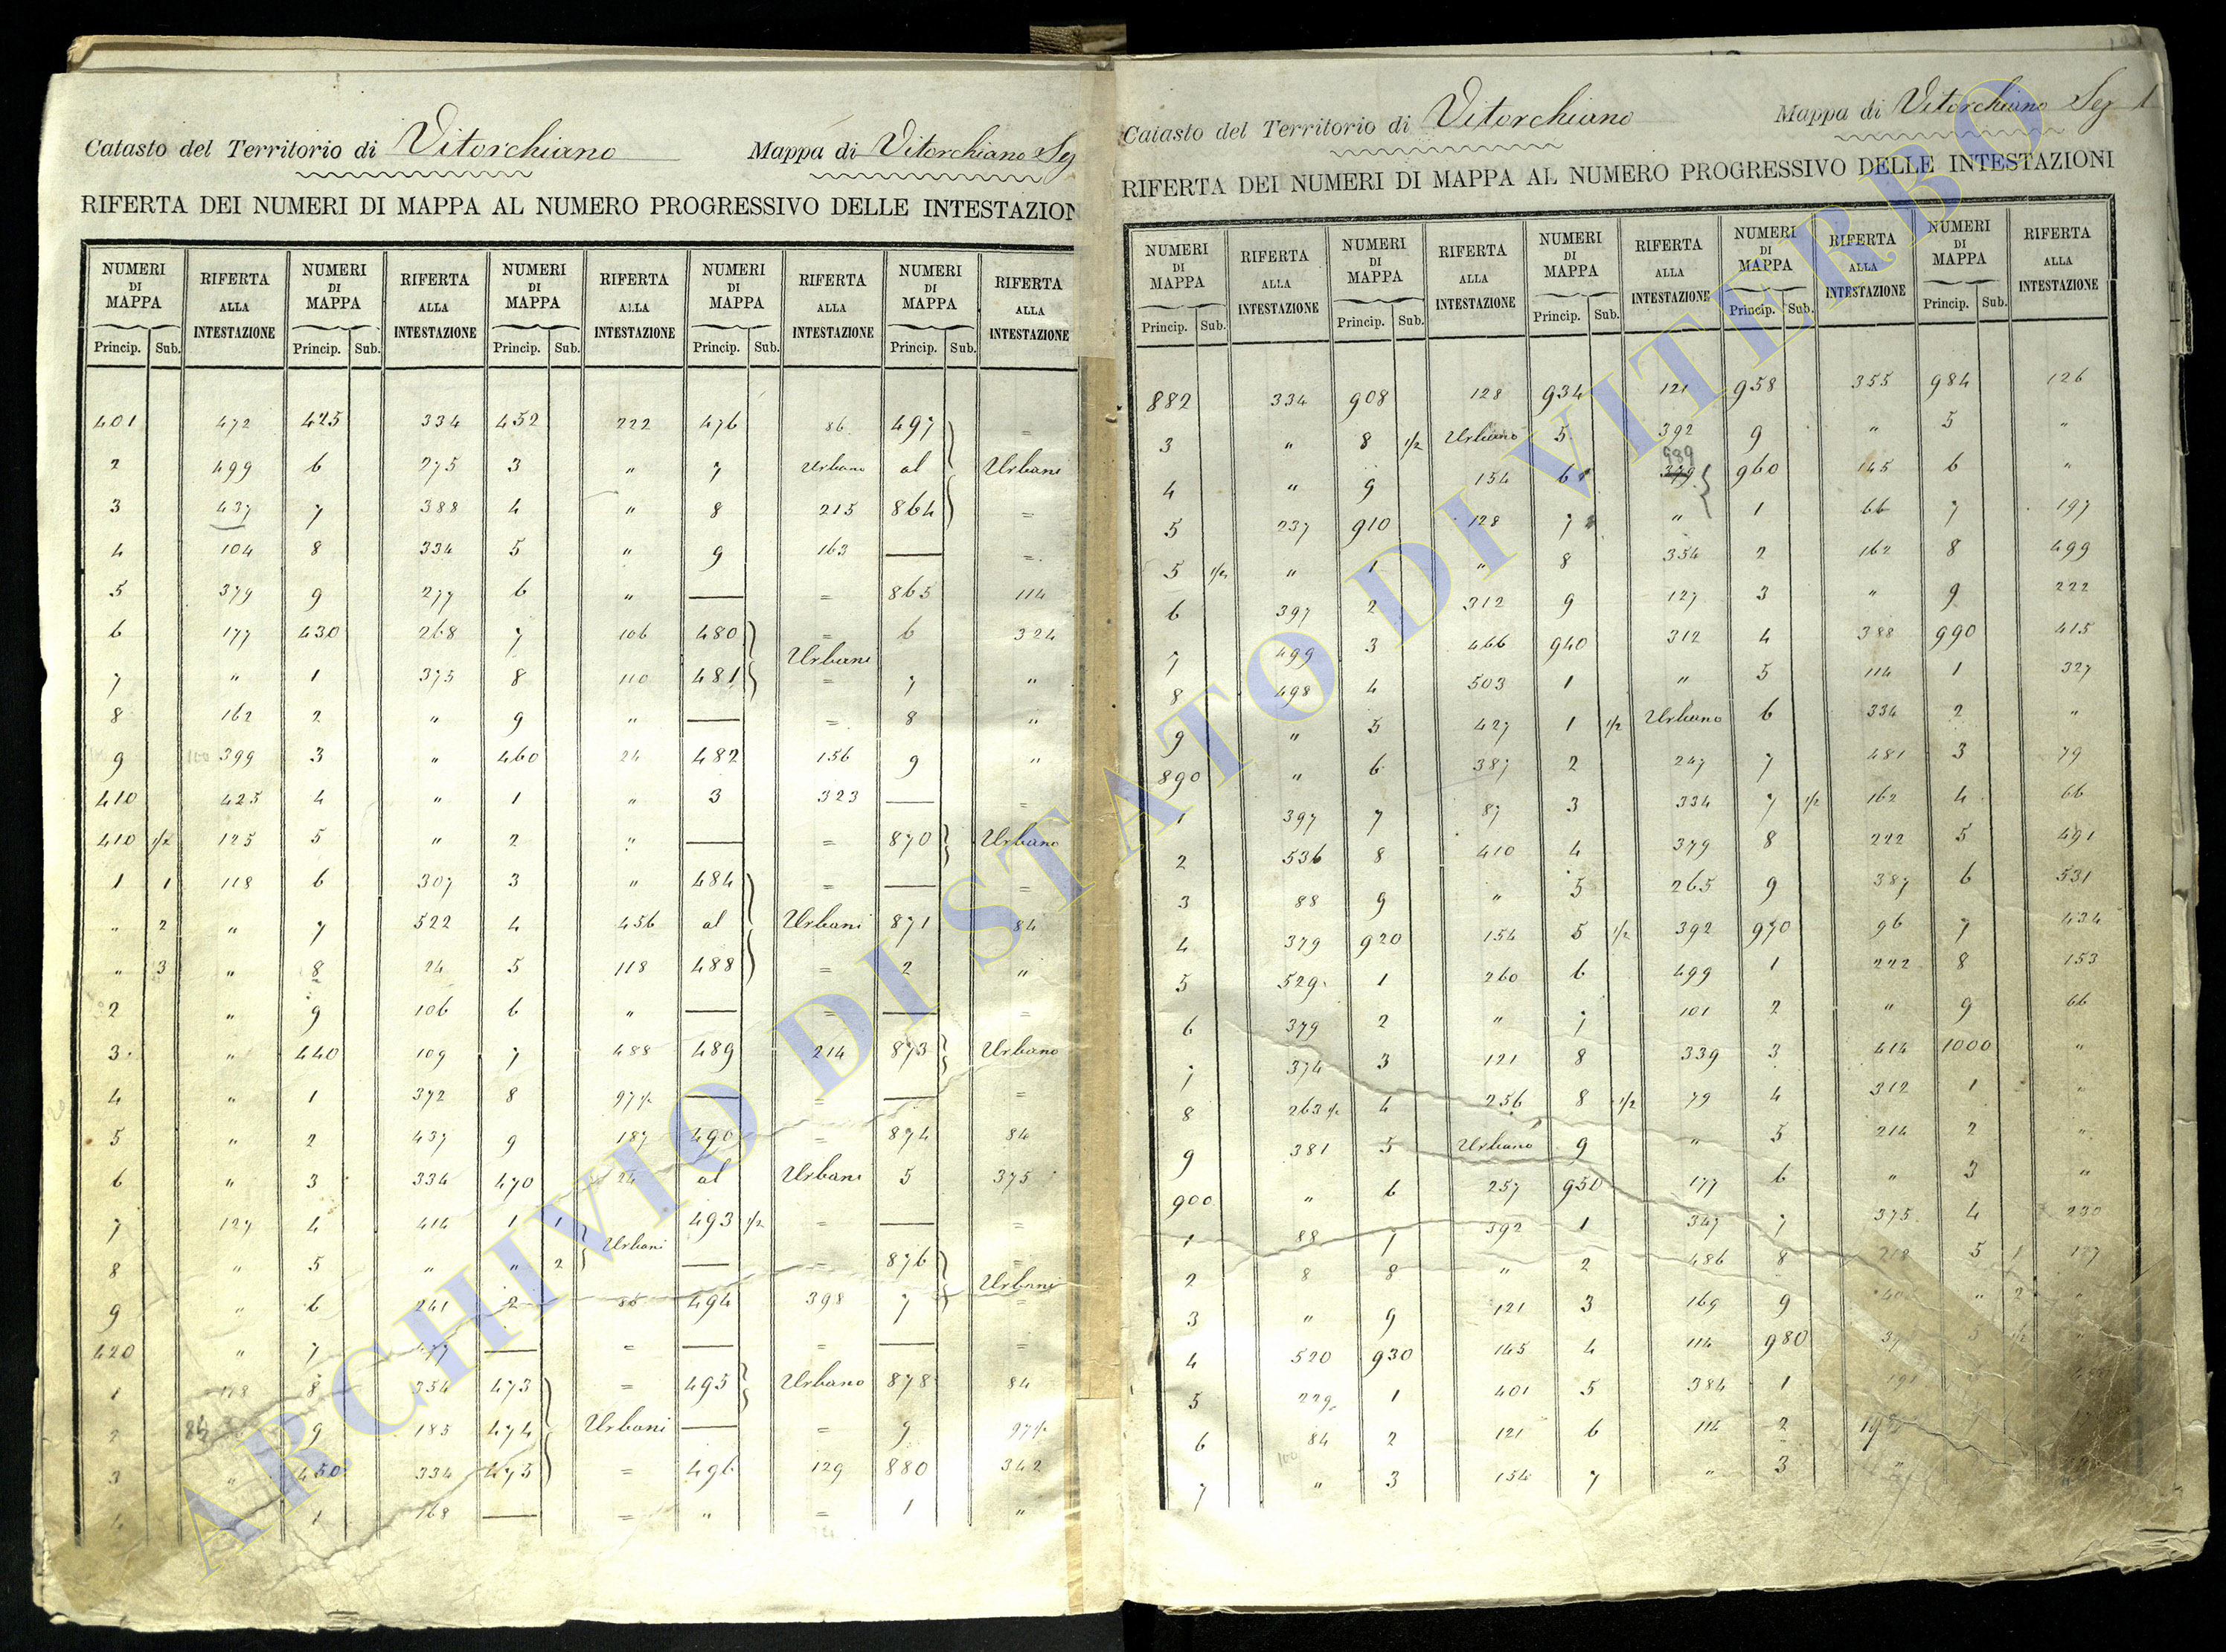 Catasto del Territorio di Vitorchiano Mappa di Vitorchiano Sez
RIFERTA DEI NUMERI DI MAPPA AL NUMERO PROGRESSIVO DELLE INTESTAZION
NUMERI DI MAPPA RIFERTA ALLA INTESTAZIONE NUMERI DI MAPPA RIFERTA ALLA INTESTAZIONE NUMERI DI MAPPA RIFERTA ALLA INTESTAZIONE NUMERI DI MAPPA RIFERTA ALLA INTESTAZIONE NUMERI DI MAPPA RIFERTA ALLA INTESTAZIONE
Princip. Sub. Princip. Sub. Princip. Sub. Princip. Sub. Princip. Sub.
401 472 425 334 452 222 476 86 497 =
2 499 6 275 3 " 7 Urbano al Urbani
3 437 7 388 4 " 8 215 864 =
4 104 8 334 5 " 9 163 — =
5 379 9 277 6 " — = 865 114
6 177 430 268 7 106 480 = 6 324
7 " 1 375 8 110 481 Urbani = 7 "
8 162 2 " 9 " — = 8 "
9 399 3 " 460 24 482 156 9 "
410 425 4 " 1 " 3 323 — =
410 1/2 125 5 " 2 " — = 870 Urbano
1 1 118 6 307 3 " 484 = — =
" 2 " 7 522 4 456 al Urbani 871 84
" 3 " 8 24 5 118 488 = 2 "
2 " 9 106 6 " — = — =
3 " 440 109 7 488 489 214 873 Urbano
4 " 1 372 8 97 1/2 — = — =
5 " 2 437 9 187 490 = 874 84
6 " 3 334 470 24 al Urbani 5 375
7 127 4 414 1 1 Urbani 493 1/2 = — =
8 " 5 " " 2 — = 876 =
9 " 6 241 2 86 494 398 7 Urbani =
420 " 7 477 — = — = — =
1 128 8 354 473 = 495 Urbano 878 84
2 84 9 185 474 Urbani — = 9 97 1/2
3 " 450 334 475 = 496 129 880 342
4 1 168 — = " = 1 "
Catasto del Territorio di Vitorchiano Mappa di Vitorchiano Sez 1
RIFERTA DEI NUMERI DI MAPPA AL NUMERO PROGRESSIVO DELLE INTESTAZIONI
NUMERI DI MAPPA RIFERTA ALLA INTESTAZIONE NUMERI DI MAPPA RIFERTA ALLA INTESTAZIONE NUMERI DI MAPPA RIFERTA ALLA INTESTAZIONE NUMERI DI MAPPA RIFERTA ALLA INTESTAZIONE NUMERI DI MAPPA RIFERTA ALLA INTESTAZIONE
Princip. Sub. Princip. Sub. Princip. Sub. Princip. Sub. Princip. Sub.
882 334 908 128 934 121 958 355 984 126
3 " 8 1/2 Urbano 5 392 9 " 5 "
4 " 9 154 6 989 379 960 145 6 "
5 237 910 128 7 " 1 66 7 197
5 1/2 " 1 " 8 354 2 162 8 499
6 397 2 312 9 127 3 " 9 222
7 499 3 466 940 312 4 388 990 415
8 498 4 503 1 " 5 114 1 327
9 " 5 427 1 1/2 Urbano 6 334 2 "
890 " 6 387 2 247 7 481 3 79
1 397 7 87 3 334 7 1/2 162 4 66
2 536 8 410 4 379 8 222 5 491
3 88 9 " 5 265 9 387 6 531
4 379 920 154 5 1/2 392 970 96 7 434
5 529 1 260 6 499 1 222 8 153
6 379 2 " 7 101 2 " 9 66
7 374 3 121 8 339 3 414 1000 "
8 263 1/2 4 256 8 1/2 79 4 312 1 "
9 381 5 Urbano 9 " 5 214 2 "
900 " 6 257 950 177 6 " 3 "
1 88 7 392 1 347 7 375 4 230
2 8 8 " 2 486 8 218 5 1 127
3 " 9 121 3 169 9 " 2 "
4 520 930 145 4 114 980 5 1/2 "
5 229 1 401 5 384 1
6 84 2 121 6 114 2
7 " 3 154 7 " 3 "
ARCHIVIO DI STATO DI VITERBO